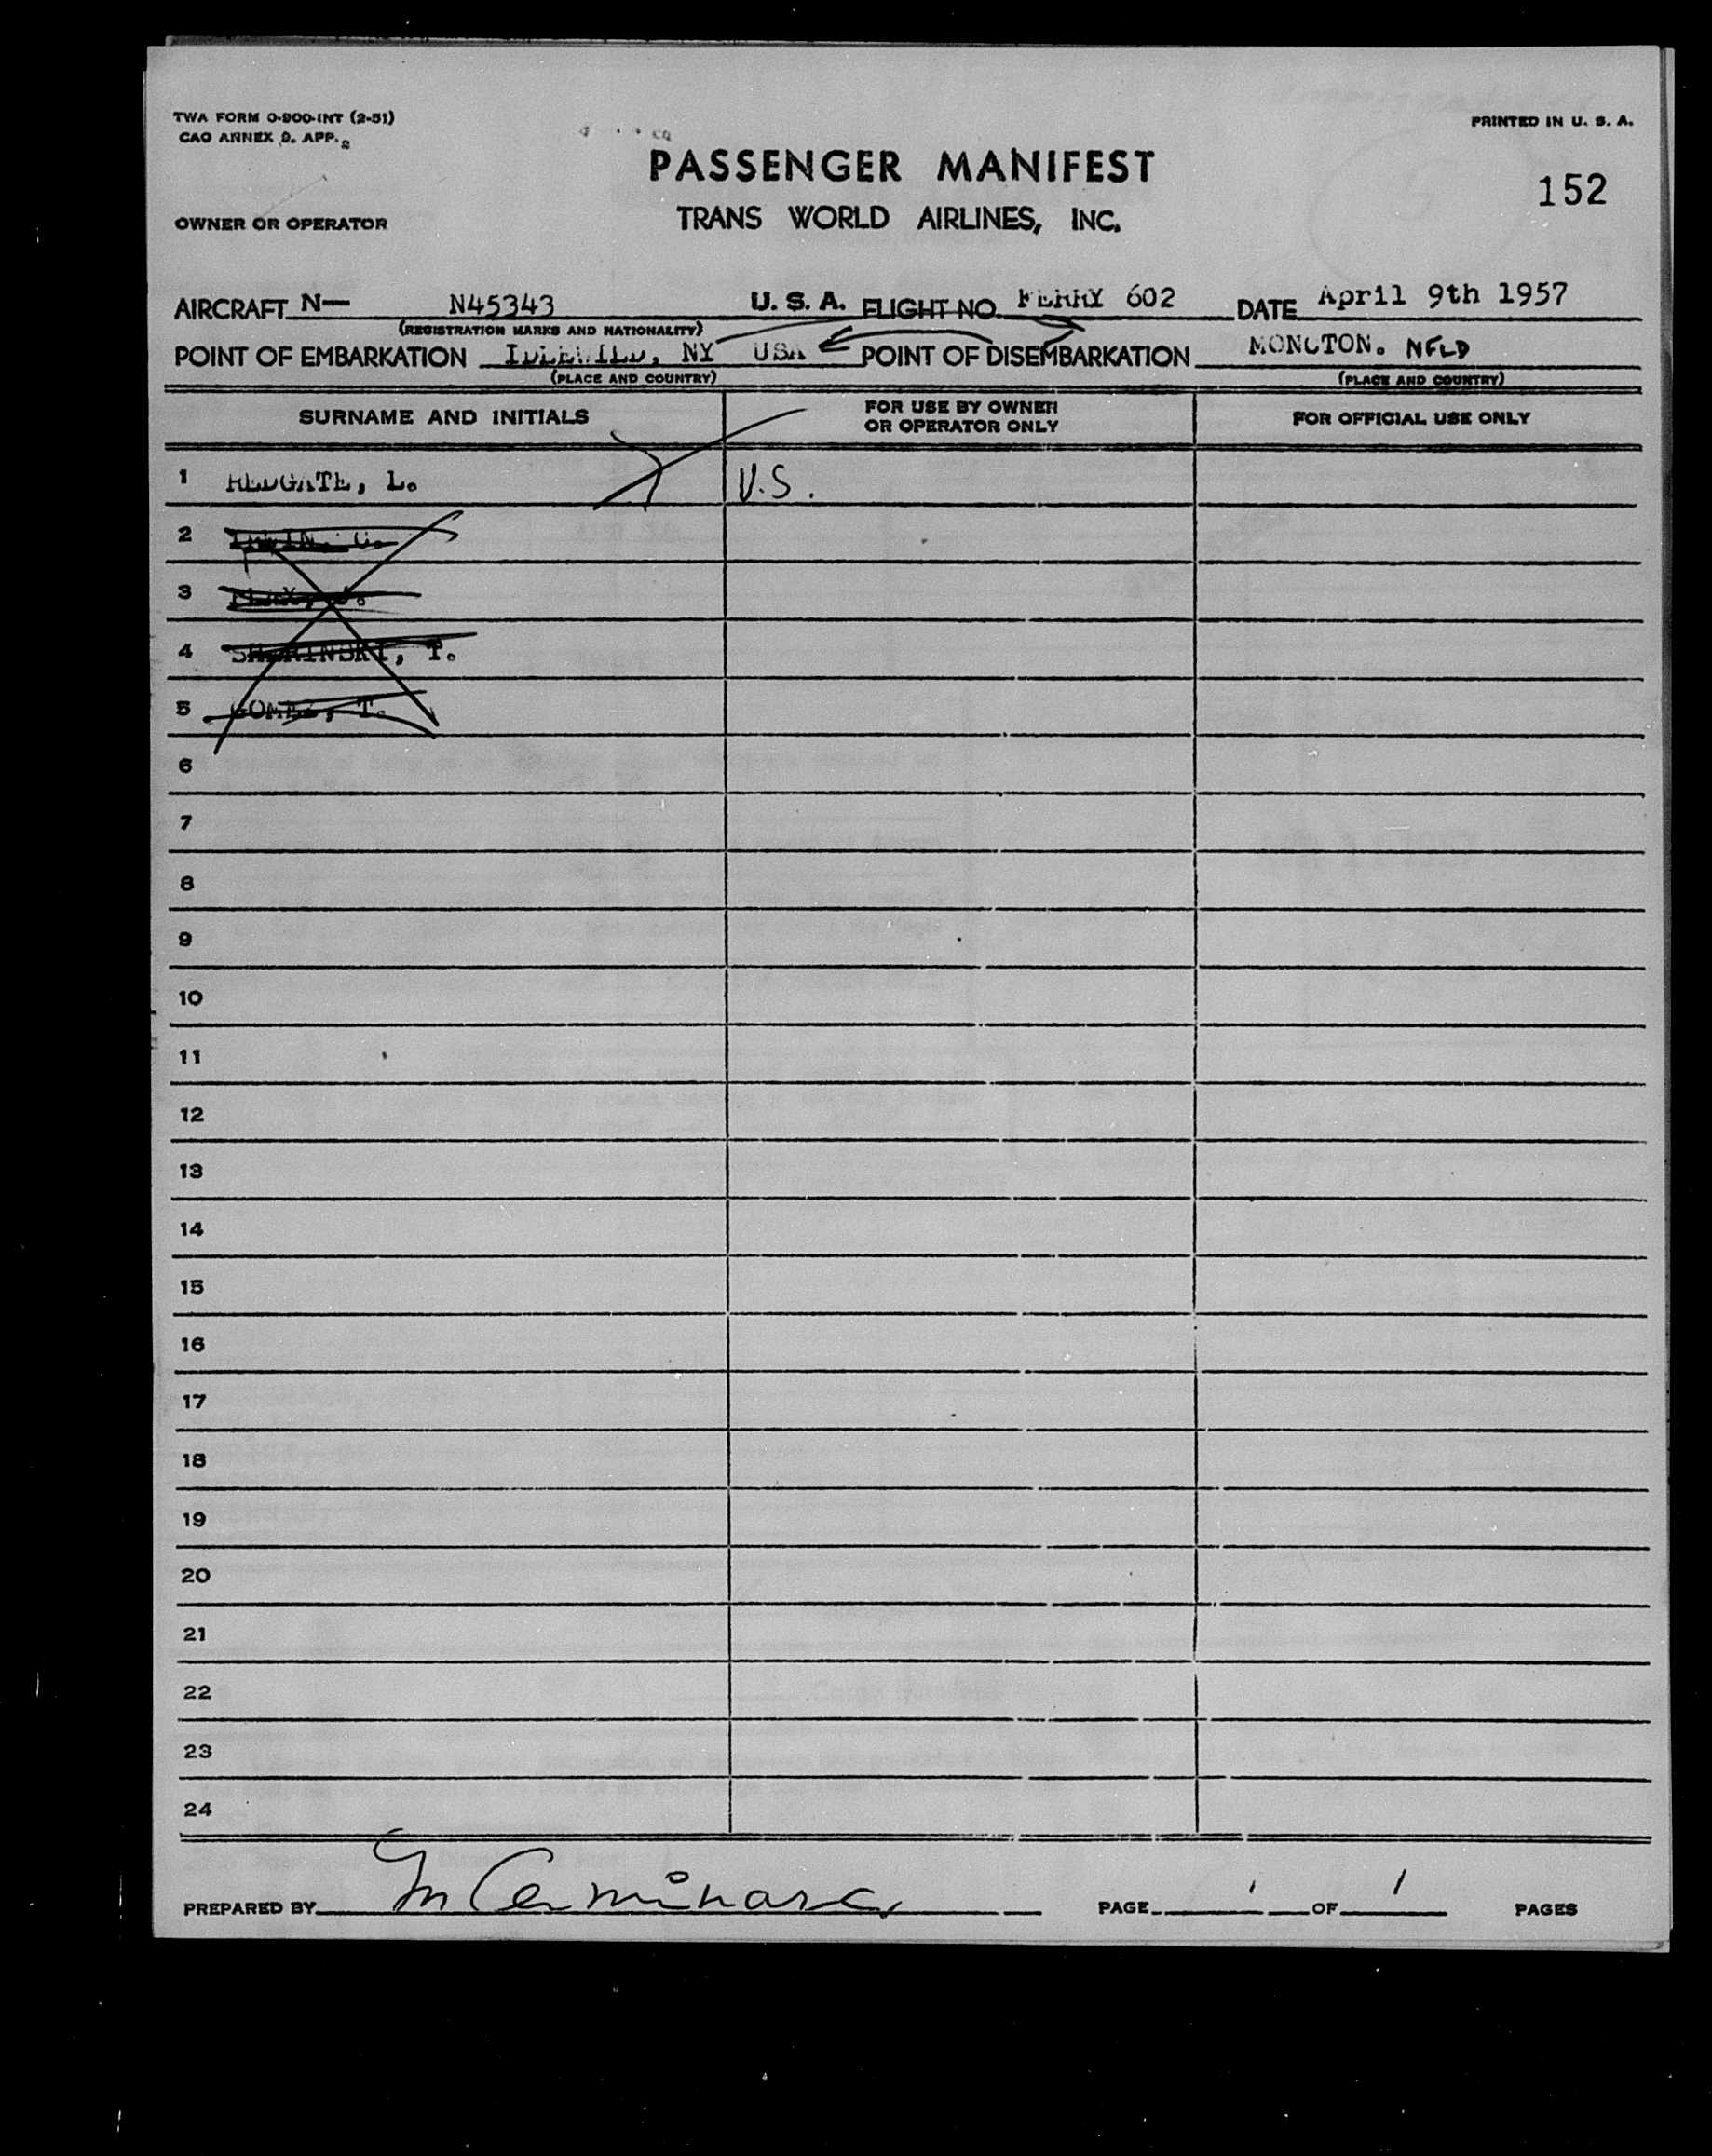 TWA FORM O-900-INT (2-51)
CAO ANNEX 9. APP. 2
PRINTED IN U. S. A.
PASSENGER MANIFEST
152
OWNER OR OPERATOR
TRANS WORLD AIRLINES, INC.
AIRCRAFT N— N45343 U. S. A. FLIGHT NO. FERRY 602 DATE April 9th 1957
(REGISTRATION MARKS AND NATIONALITY)
POINT OF EMBARKATION IDLEWILD, NY USA POINT OF DISEMBARKATION MONCTON. NFLD
(PLACE AND COUNTRY) (PLACE AND COUNTRY)
SURNAME AND INITIALS FOR USE BY OWNER OR OPERATOR ONLY FOR OFFICIAL USE ONLY
1 REDGATE, L. V.S.
2
3
4 T.
5 GOMEZ, T.
6
7
8
9
10
11
12
13
14
15
16
17
18
19
20
21
22
23
24
PREPARED BY M Cerminara PAGE 1 OF 1 PAGES